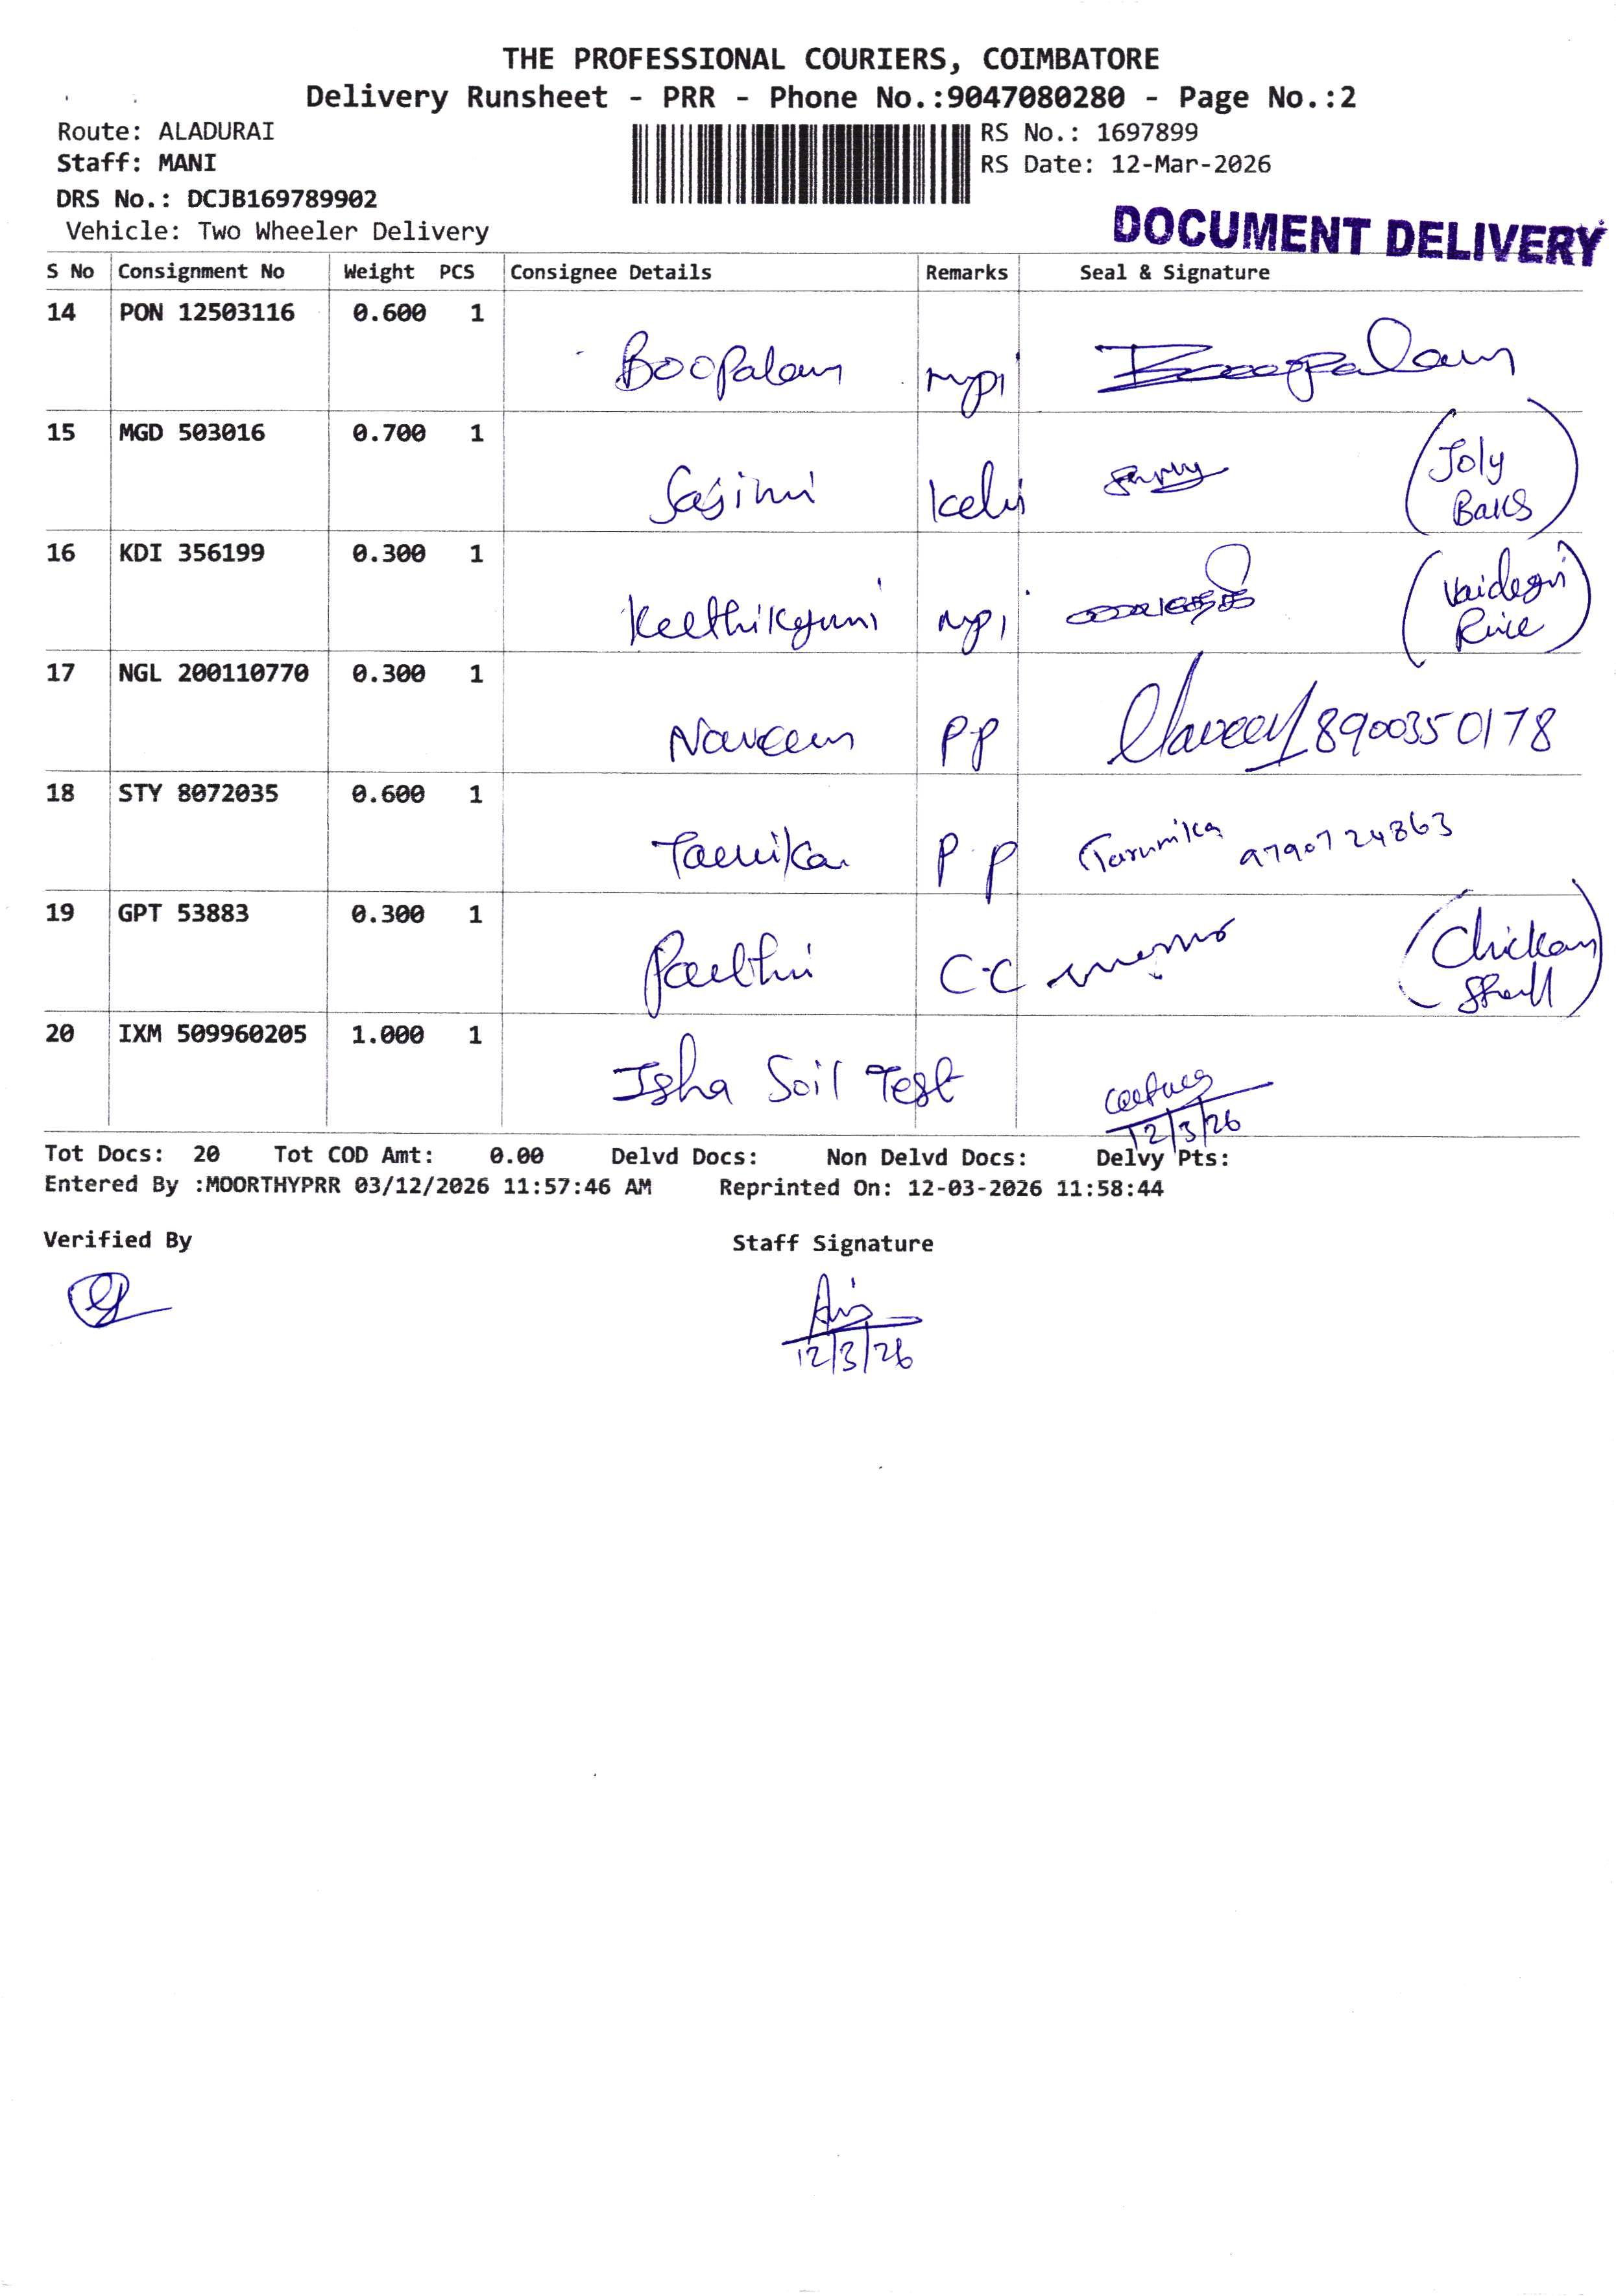 THE PROFESSIONAL COURIERS, COIMBATORE
Delivery Runsheet - PRR - Phone No.:9047080280 - Page No.:2
Route: ALADURAI
RS No.: 1697899
Staff: MANI
RS Date: 12-Mar-2026
DRS No.: DCJB169789902
Vehicle: Two Wheeler Delivery
DOCUMENT DELIVERY
S No Consignment No Weight PCS Consignee Details Remarks Seal & Signature
14 PON 12503116 0.600 1
Boopalan
15 MGD 503016 0.700 1
Joly
16 KDI 356199 0.300 1
17 NGL 200110770 0.300 1
Naveen PP Naveen 8900350178
18 STY 8072035 0.600 1
P P Tarumika 9790724863
19 GPT 53883 0.300 1
C.C (Chicken
20 IXM 509960205 1.000 1
Isha Soil Test
12/3/26
Tot Docs: 20 Tot COD Amt: 0.00 Delvd Docs: Non Delvd Docs: Delvy Pts:
Entered By :MOORTHYPRR 03/12/2026 11:57:46 AM Reprinted On: 12-03-2026 11:58:44
Verified By Staff Signature
12/3/26